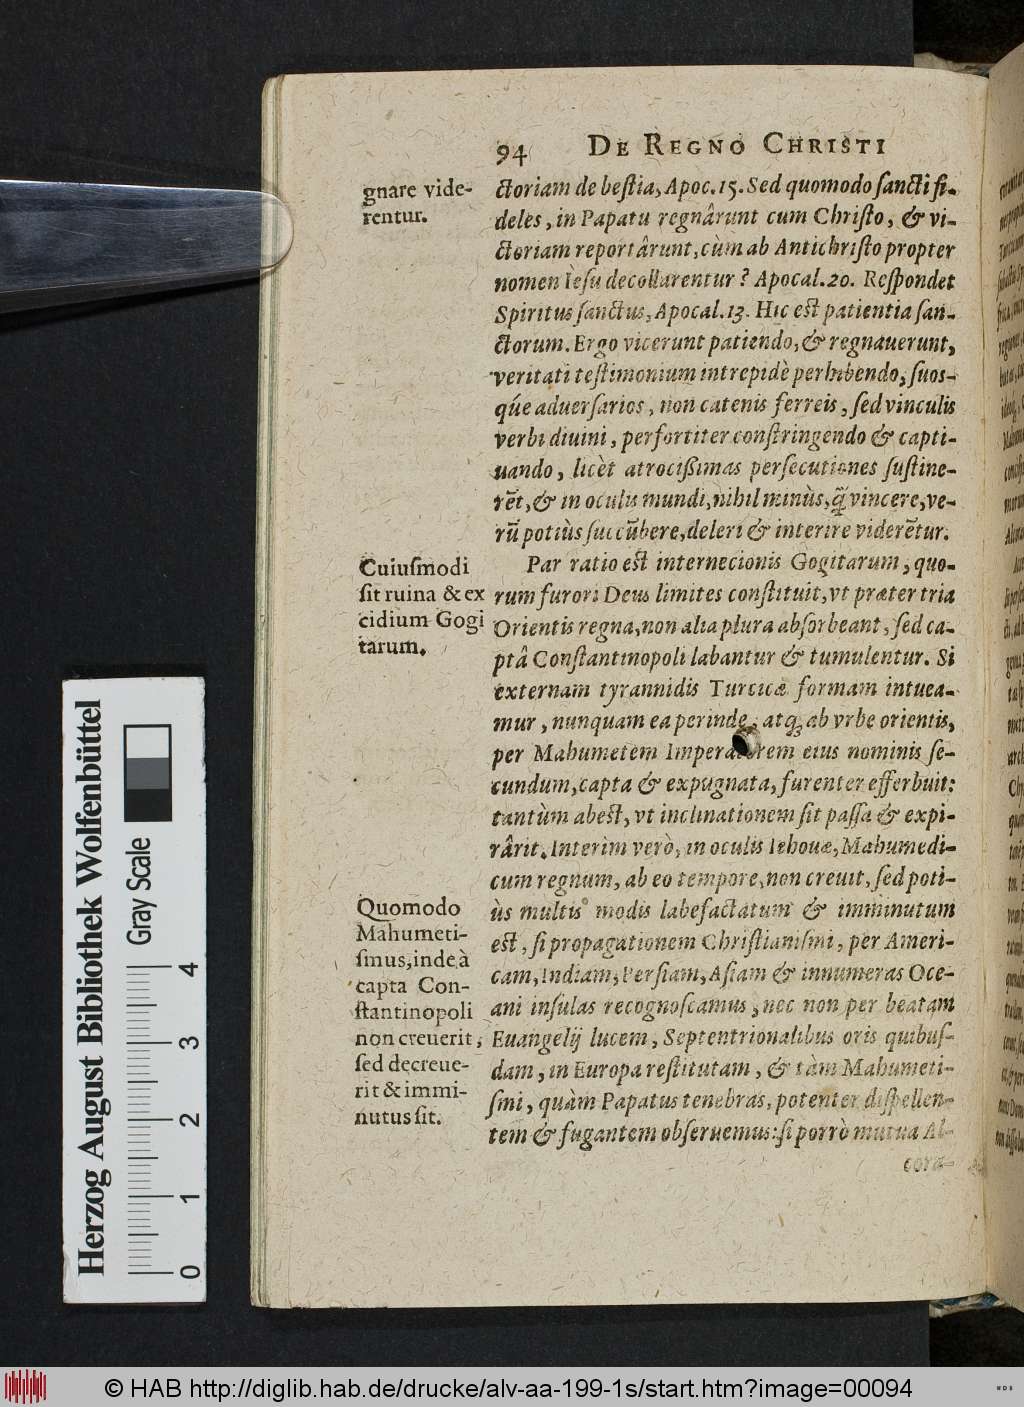 94 DE REGNO CHRISTI
gnare vide-
rentur.
ctoriam de bestia, Apoc. 15. Sed quomodo sancti fi-
deles, in Papatu regnârunt cum Christo, & vi-
ctoriam reportârunt, cùm ab Antichristo propter
nomen Iesu decollarentur? Apocal. 20. Respondet
Spiritus sanctus, Apocal. 13. Hic est patientia san-
ctorum. Ergo vicerunt patiendo, & regnauerunt,
veritati testimonium intrepidè perhibendo, suos-
qúe aduersarios, non catenis ferreis, sed vinculis
verbi diuini, perfortiter constringendo & capti-
uando, licèt atrocißimas persecutiones sustine-
rēt, & in oculis mundi, nihil minùs, q̃ vincere, ve-
rū potiùs succūbere, deleri & interire viderētur.
Cuiusmodi
sit ruina & ex
cidium Gogi
tarum.
Par ratio est internecionis Gogitarum, quo-
rum furori Deus limites constituit, vt præter tria
Orientis regna, non alia plura absorbeant, sed ca-
ptâ Constantinopoli labantur & tumulentur. Si
externam tyrannidis Turcicæ formam intuea-
mur, nunquam ea perinde, atq; ab vrbe orientis,
per Mahumetem Imperatorem eius nominis se-
cundum, capta & expugnata, furenter efferbuit:
tantùm abest, vt inclinationem sit passa & expi-
rârit. Interim verò, in oculis Iehouæ, Mahumedi-
cum regnum, ab eo tempore, non creuit, sed poti-
Quomodo
Mahumeti-
smus, inde à
capta Con-
stantinopoli
non creuerit,
sed decreue-
rit & immi-
nutus sit.
ùs multis modis labefactatum & imminutum
est, si propagationem Christianismi, per Ameri-
cam, Indiam, Persiam, Asiam & innumeras Oce-
ani insulas recognoscamus, nec non per beatam
Euangelij lucem, Septentrionalibus oris quibus-
dam, in Europa restitutam, & tàm Mahumeti-
smi, quàm Papatus tenebras, potenter dispellen-
tem & fugantem obseruemus: si porrò mutua Al-
cora-
Herzog August Bibliothek Wolfenbüttel
Gray Scale
0 1 2 3 4
© HAB http://diglib.hab.de/drucke/alv-aa-199-1s/start.htm?image=00094